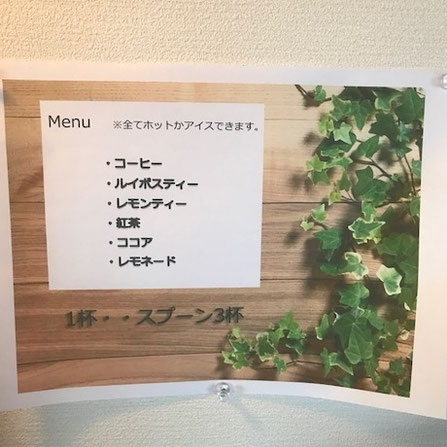 Menu ※全てホットかアイスできます。
・コーヒー
・ルイボスティー
・レモンティー
・紅茶
・ココア
・レモネード
1杯・・スプーン3杯